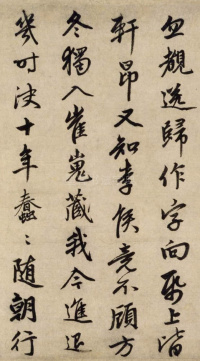 忽覩送歸作字向帋上皆
軒昂又知李侯竟不顧方
冬獨入崔嵬藏我今進退
幾时决十年蠢〻随朝行